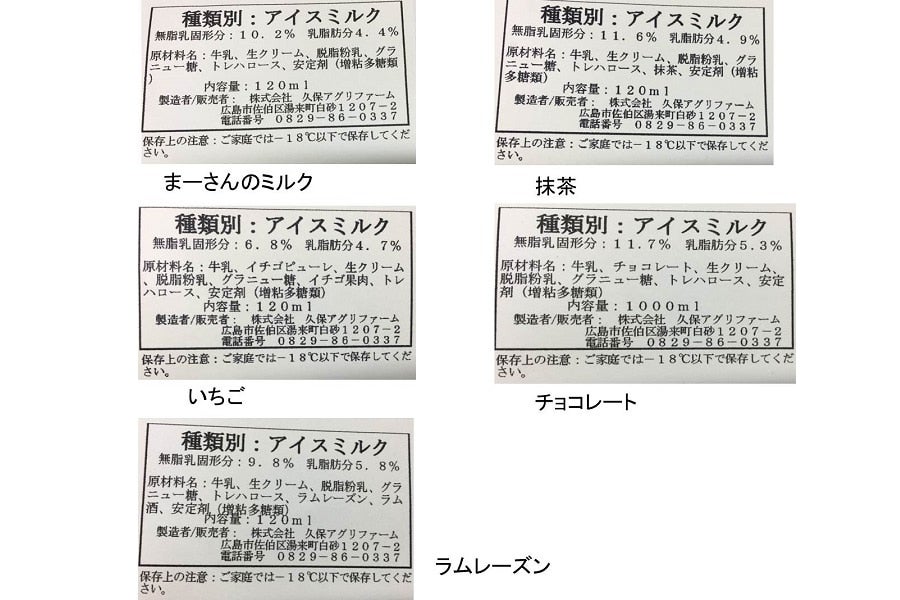 種類別：アイスミルク
無脂乳固形分：１０．２％　乳脂肪分４．４％
原材料名：牛乳、生クリーム、脱脂粉乳、グラ
ニュー糖、トレハロース、安定剤（増粘多糖類
）
内容量：１２０ｍｌ
製造者/販売者：　株式会社　久保アグリファーム
広島市佐伯区湯来町白砂１２０７−２
電話番号　０８２９−８６−０３３７
保存上の注意：ご家庭では−１８℃以下で保存してくだ
さい。
まーさんのミルク
種類別：アイスミルク
無脂乳固形分：１１．６％　乳脂肪分４．９％
原材料名：牛乳、生クリーム、脱脂粉乳、グラ
ニュー糖、トレハロース、抹茶、安定剤（増粘
多糖類）
内容量：１２０ｍｌ
製造者/販売者：　株式会社　久保アグリファーム
広島市佐伯区湯来町白砂１２０７−２
電話番号　０８２９−８６−０３３７
保存上の注意：ご家庭では−１８℃以下で保存してくだ
さい。
抹茶
種類別：アイスミルク
無脂乳固形分：６．８％　乳脂肪分４．７％
原材料名：牛乳、イチゴピューレ、生クリーム
、脱脂粉乳、グラニュー糖、イチゴ果肉、トレ
ハロース、安定剤（増粘多糖類）
内容量：１２０ｍｌ
製造者/販売者：　株式会社　久保アグリファーム
広島市佐伯区湯来町白砂１２０７−２
電話番号　０８２９−８６−０３３７
保存上の注意：ご家庭では−１８℃以下で保存してくだ
さい。
いちご
種類別：アイスミルク
無脂乳固形分：１１．７％　乳脂肪分５．３％
原材料名：牛乳、チョコレート、生クリーム、
脱脂粉乳、グラニュー糖、トレハロース、安定
剤（増粘多糖類）
内容量：１０００ｍｌ
製造者/販売者：　株式会社　久保アグリファーム
広島市佐伯区湯来町白砂１２０７−２
電話番号　０８２９−８６−０３３７
保存上の注意：ご家庭では−１８℃以下で保存してくだ
さい。
チョコレート
種類別：アイスミルク
無脂乳固形分：９．８％　乳脂肪分５．８％
原材料名：牛乳、生クリーム、脱脂粉乳、グラ
ニュー糖、トレハロース、ラムレーズン、ラム
酒、安定剤（増粘多糖類）
内容量：１２０ｍｌ
製造者/販売者：　株式会社　久保アグリファーム
広島市佐伯区湯来町白砂１２０７−２
電話番号　０８２９−８６−０３３７
保存上の注意：ご家庭では−１８℃以下で保存してくだ
さい。
ラムレーズン